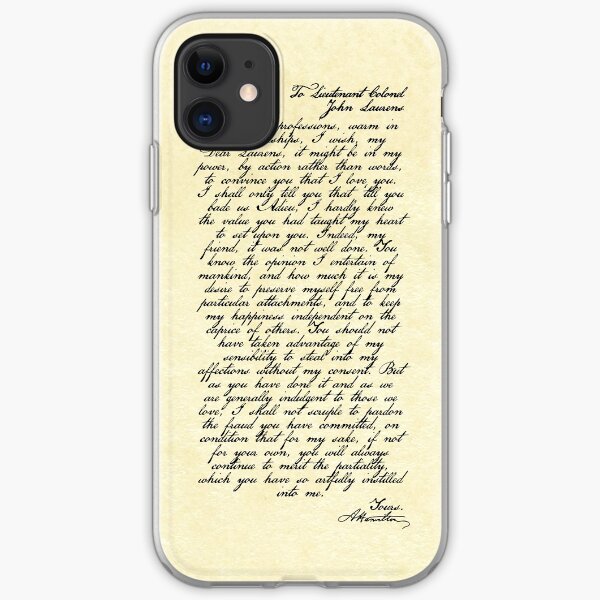 To Lieutenant Colonel
John Laurens
professions, warm in
ships, I wish, my
Dear Laurens, it might be in my
power, by action rather than words,
to convince you that I love you.
I shall only tell you that 'till you
bade us Adieu, I hardly knew
the value you had taught my heart
to set upon you. Indeed, my
friend, it was not well done. You
know the opinion I entertain of
mankind, and how much it is my
desire to preserve myself free from
particular attachments, and to keep
my happiness independent on the
caprice of others. You should not
have taken advantage of my
sensibility to steal into my
affections without my consent. But
as you have done it and as we
are generally indulgent to those we
love, I shall not scruple to pardon
the fraud you have committed, on
condition that for my sake, if not
for your own, you will always
continue to merit the partiality,
which you have so artfully instilled
into me.
Yours.
A Hamilton